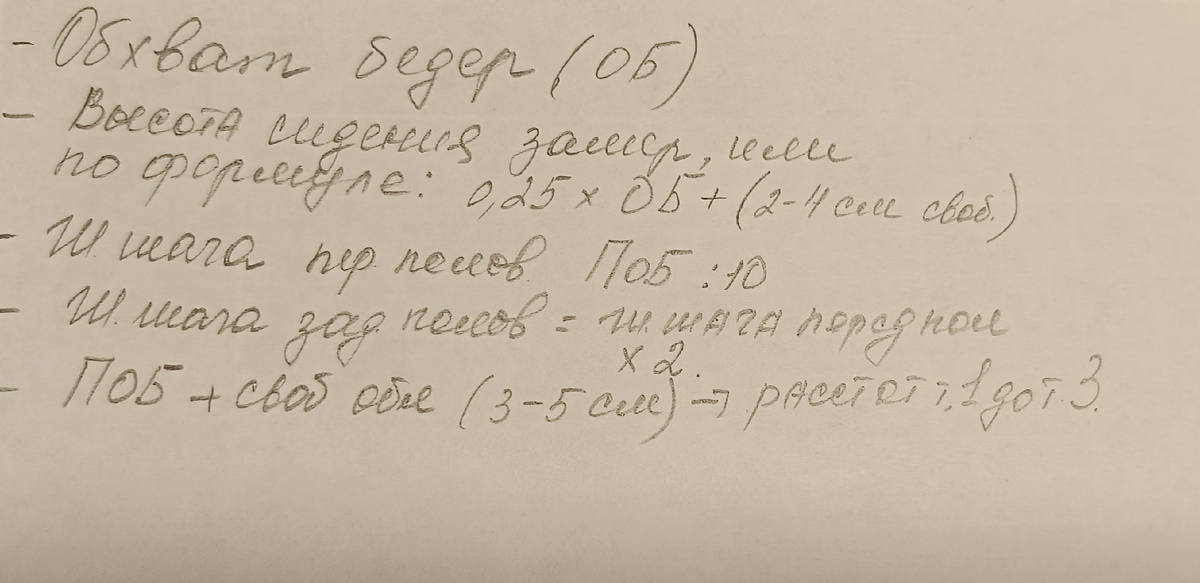 - Обхват бедер (ОБ)
- Высота сидения замер, или
по формуле: 0,25 × ОБ + (2-4 см своб.)
- Ш. шага пер. полов. ПОБ : 10
- Ш. шага зад. полов = ш. шага передн пол
× 2.
- ПОБ + своб обл (3-5 см) → расст от т. 1 до т. 3.